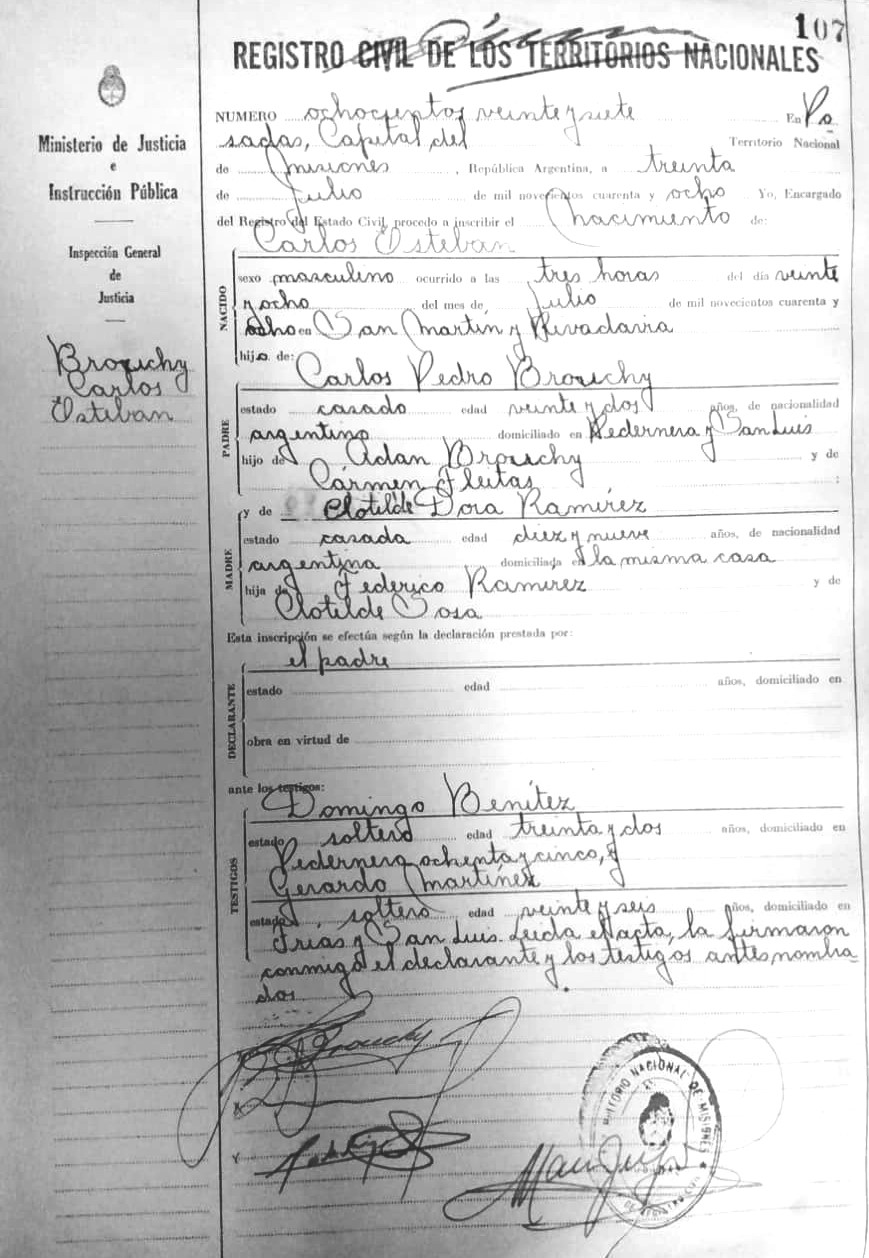 107
REGISTRO CIVIL DE LOS TERRITORIOS NACIONALES
Ministerio de Justicia
e
Instrucción Pública
Inspección General
de
Justicia
Brouchy
Carlos
Esteban
NUMERO ochocientos veinte y siete En Po
sadas, Capital del Territorio Nacional
de Misiones, República Argentina, a treinta
de Julio de mil novecientos cuarenta y ocho Yo, Encargado
del Registro del Estado Civil, procedo a inscribir el Nacimiento de:
Carlos Esteban
NACIDO
sexo masculino ocurrido a las tres horas del día veinte
y ocho del mes de Julio de mil novecientos cuarenta y
ocho en San Martín y Rivadavia
hijo de:
Carlos Pedro Brouchy
PADRE
estado casado edad veinte y dos años, de nacionalidad
argentino domiciliado en Pedernera y San Luis
hijo de Adan Brouchy y de
Cármen Fleitas :
y de Clotilde Dora Ramírez
MADRE
estado casada edad diez y nueve años, de nacionalidad
argentina domiciliada en la misma casa
hija de Federico Ramirez y de
Clotilde Sosa
Esta inscripción se efectúa según la declaración prestada por:
el padre
DECLARANTE
estado edad años, domiciliado en
obra en virtud de
ante los testigos:
Domingo Benítez
TESTIGOS
estado soltero edad treinta y dos años, domiciliado en
Pedernera ochenta y cinco, y
Gerardo Martínez
estado soltero edad veinte y seis años, domiciliado en
Frías y San Luis. Leida el acta, la firmaron
conmigo el declarante y los testigos antes nombra
dos.
Brouchy
TERRITORIO NACIONAL DE MISIONES
REGISTRO CIVIL